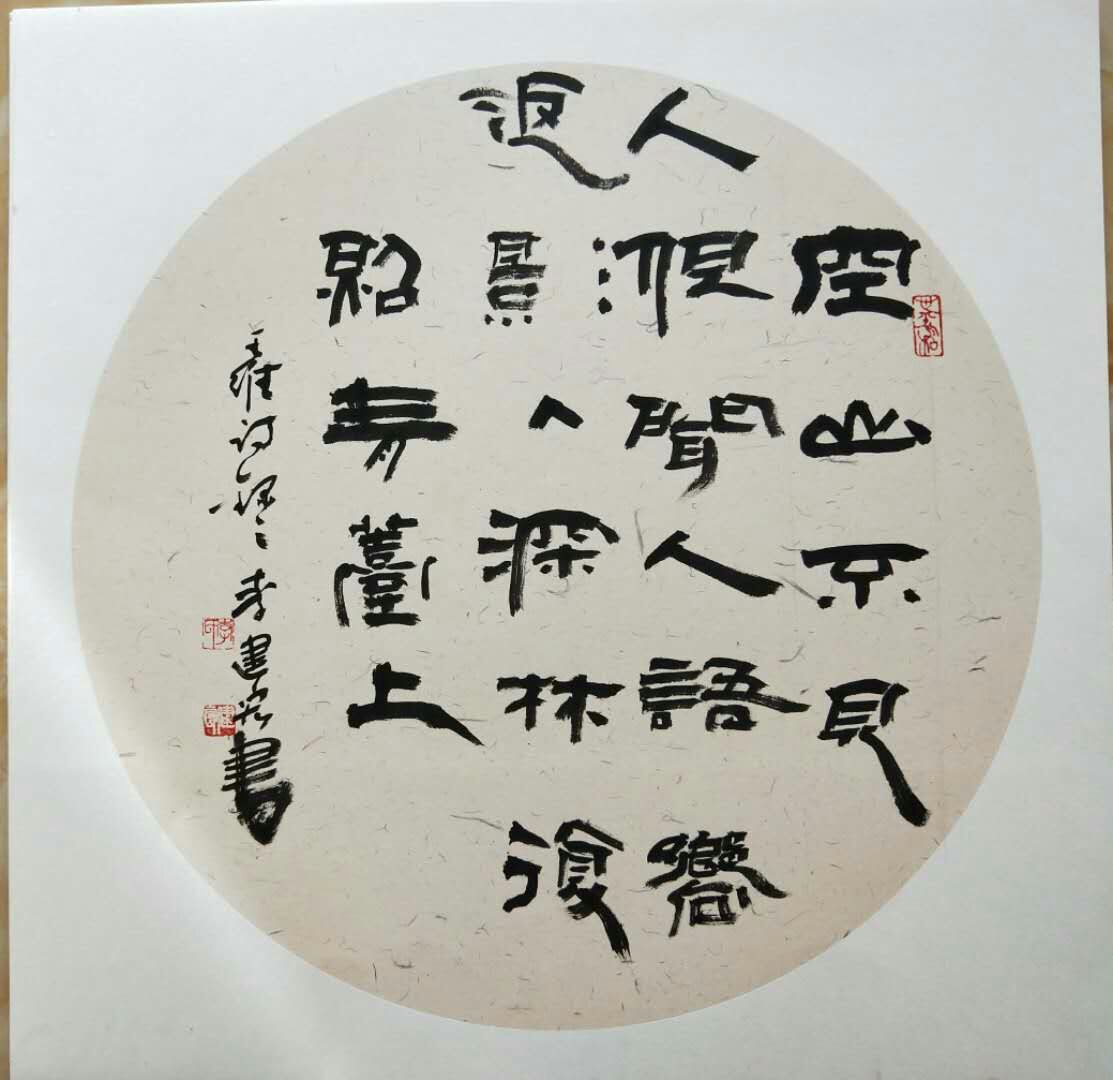 空山不見
人但聞人語響
返景入深林復
照青薹上
王維詩 李建書